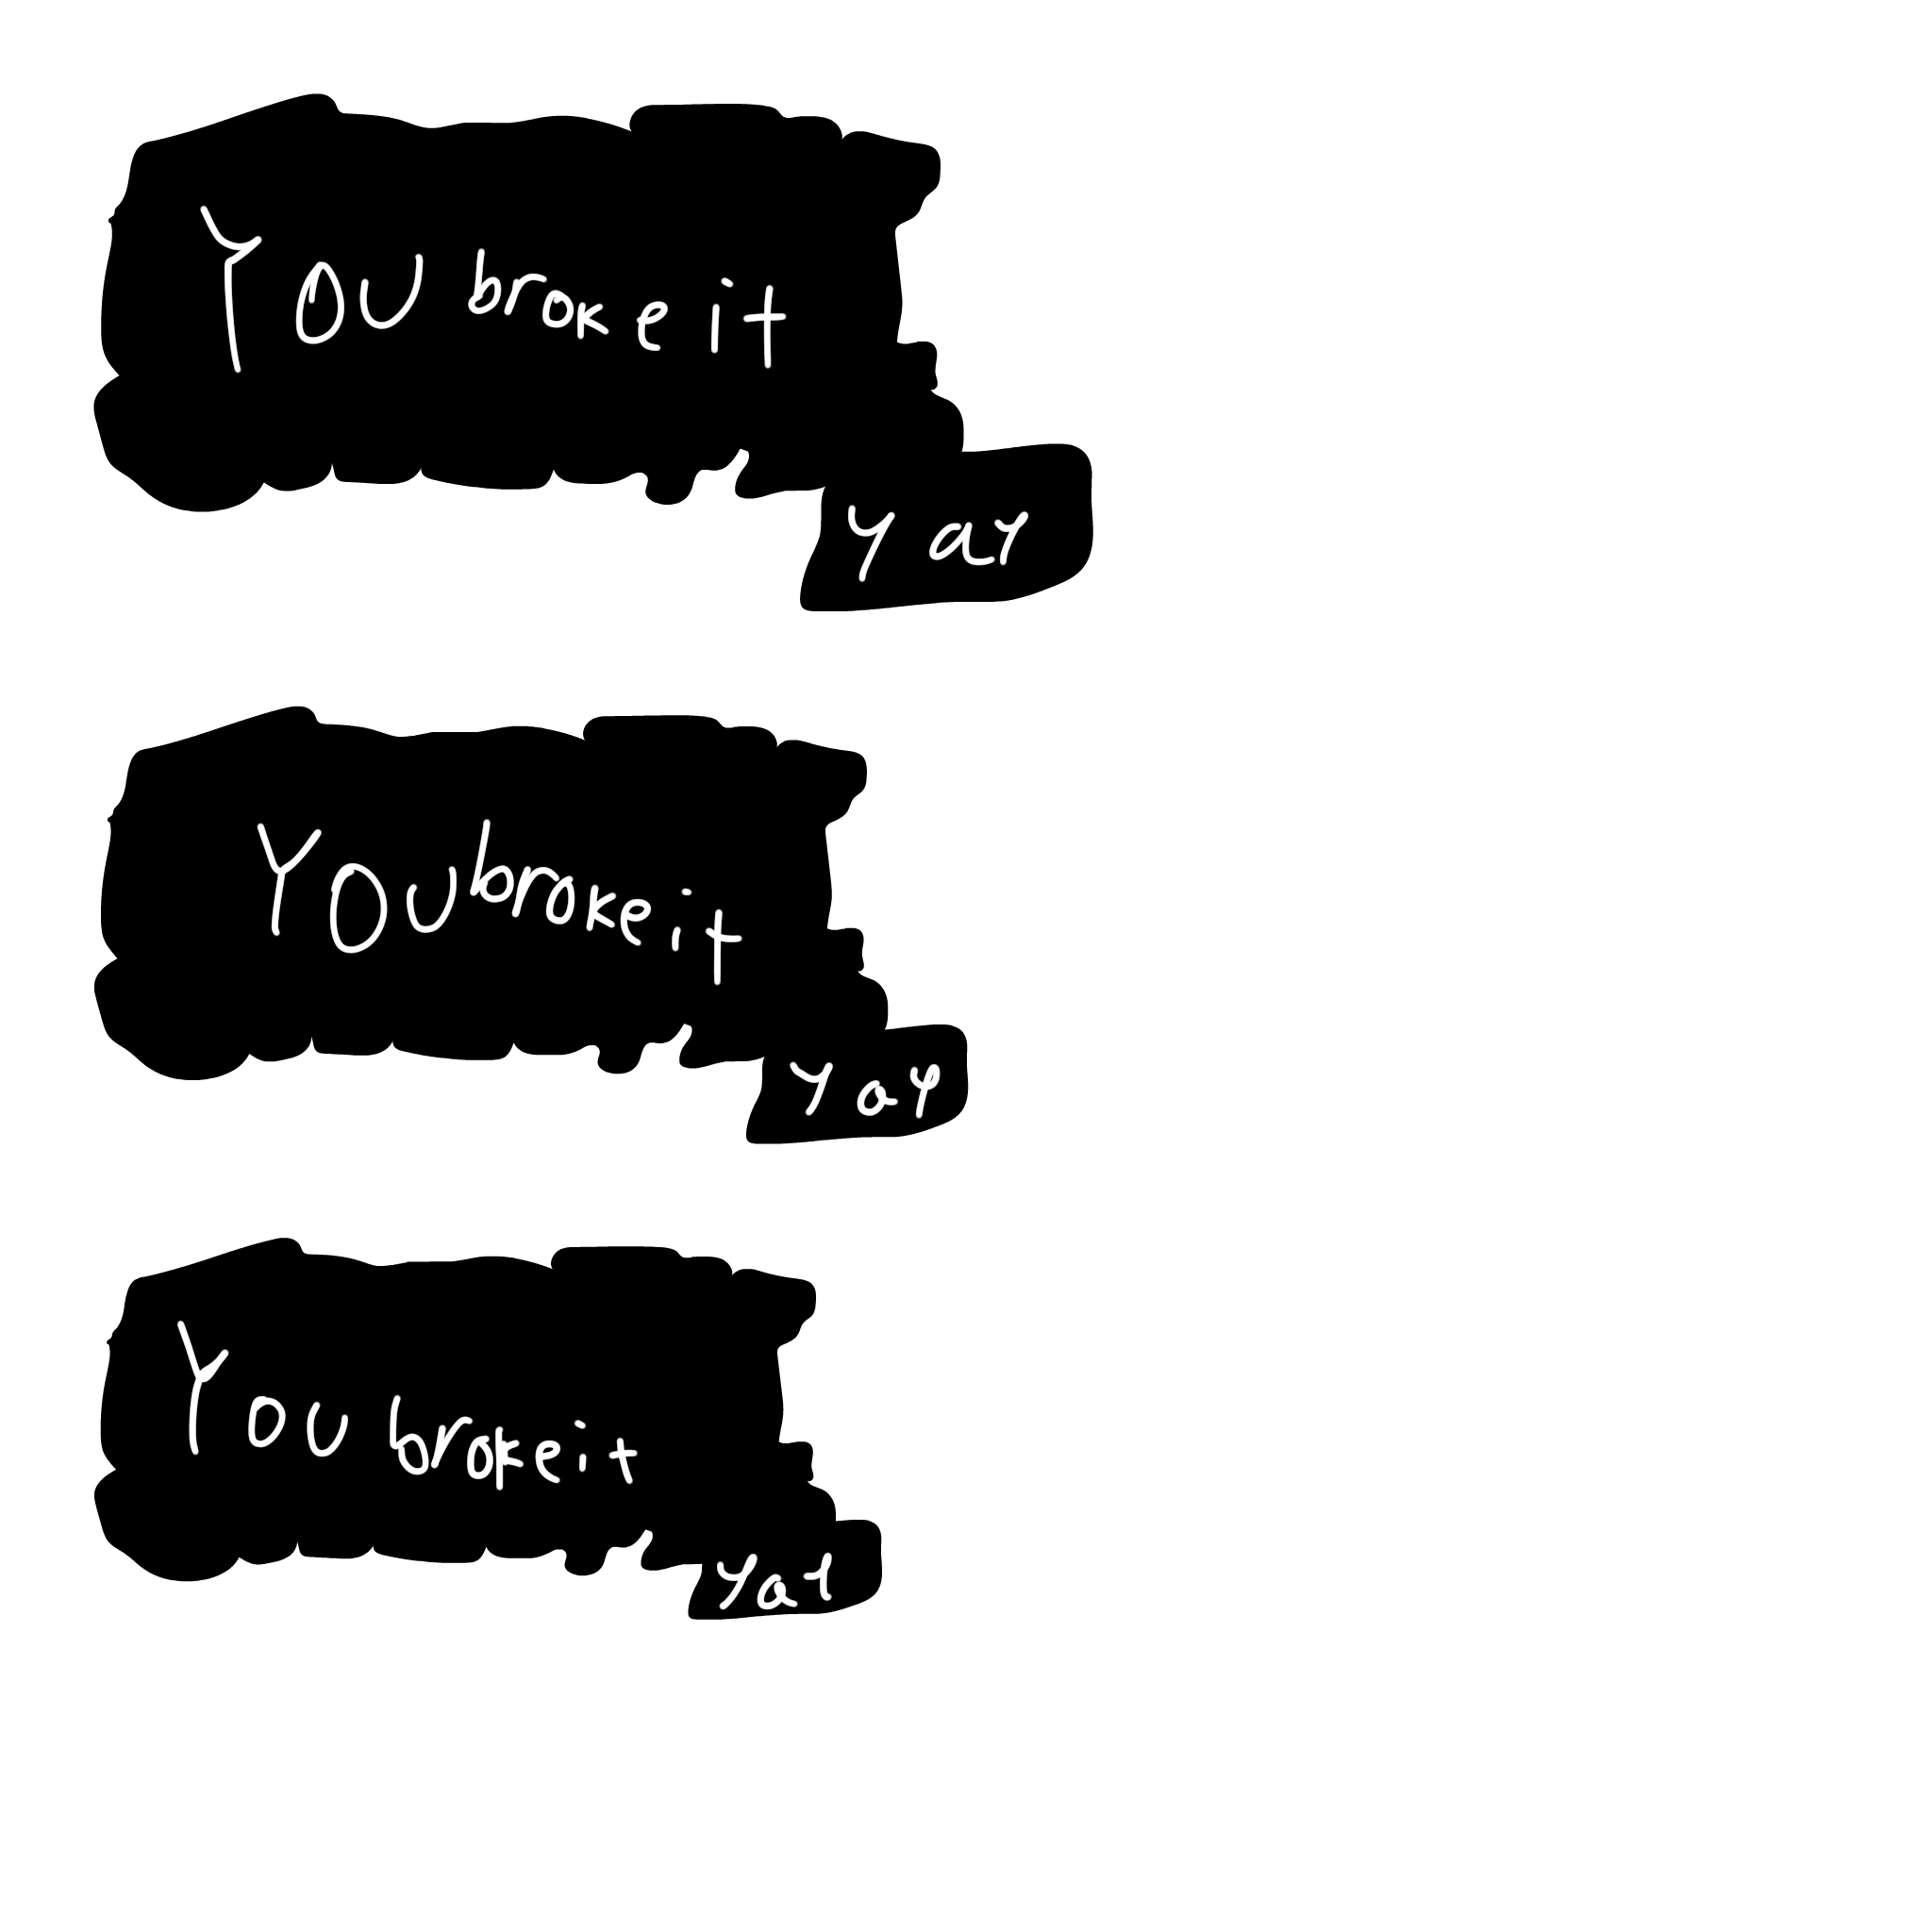 You broke it
Yar
You broke it
Yap
You broke it
Yat